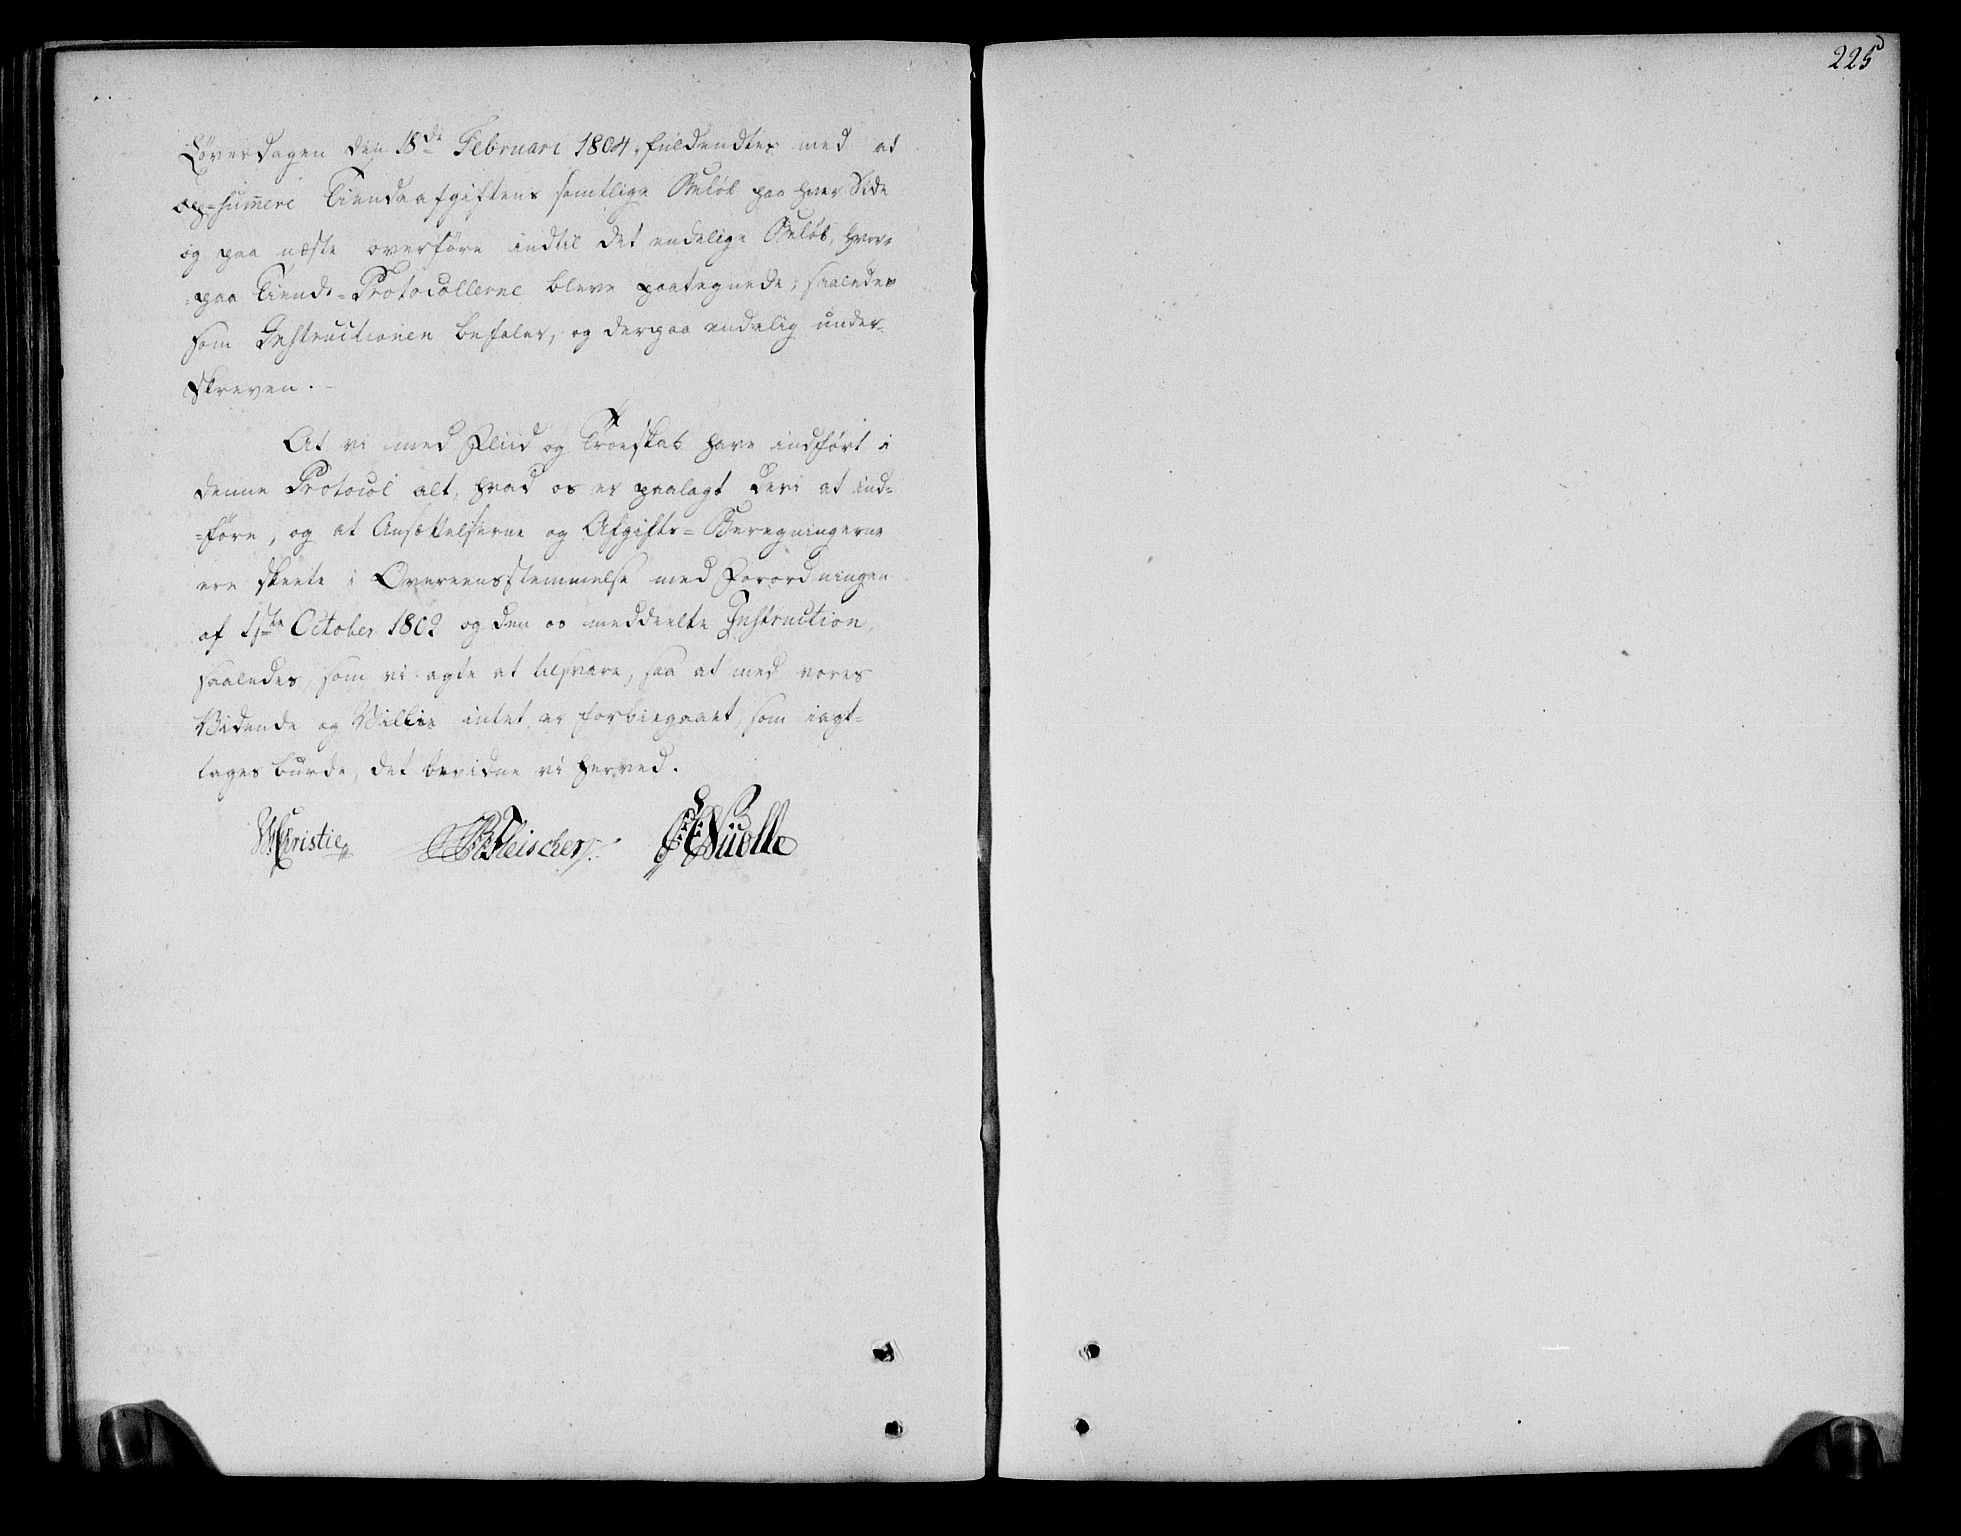 225
Löverdagen den 18de Februari 1804. fuldendtes med at
op-sum̅ere Tiendeafgiftens samtlige Beløb paa hver Side
og paa næste overføre indtil det endelige Beløb, hvor-
paa Tiende-Protocollerne bleve paategnede, saaledes
som Instructionen befaler, og derpaa endelig under-
skreven.
At vi med Fliid og Troeskab have indført i
denne Protocol alt, hvad os er paalagt deri at ind-
-føre, og at Ansættelserne og Afgifts-Beregningerne
ere skeete i Overeensstemmelse med Forordningen
af 1ste October 1802 og den os meddeelte Instruction,
saaledes, som vi agte at tilsvare, saa at med vores
Vidende og Villie intet er forbiegaaet, som iagt-
tages burde, det bevidne vi herved.
Christie Fleischer